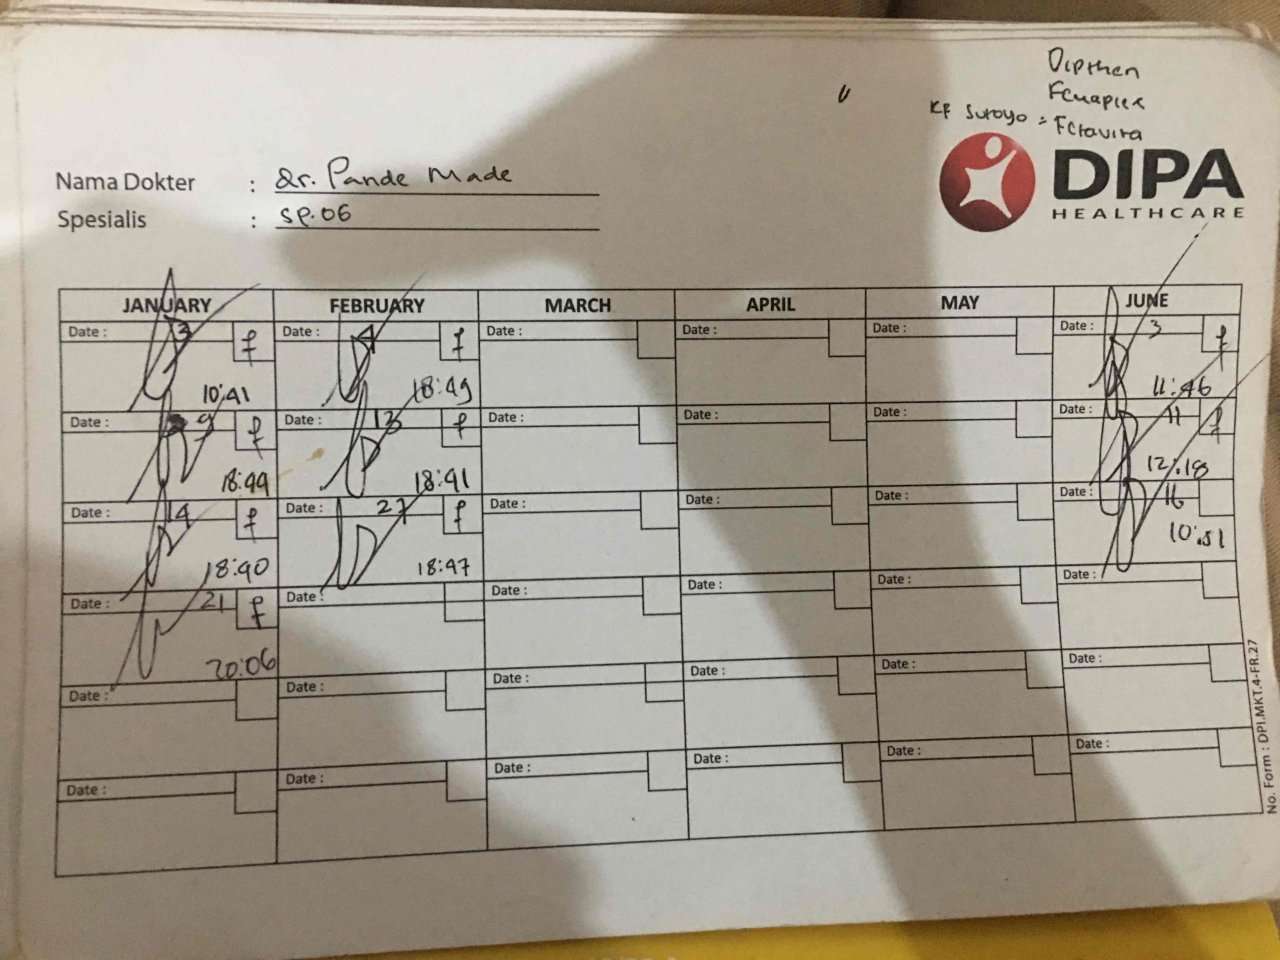 Dipthen
KF Suroyo = Fctavita
DIPA
HEALTHCARE
Nama Dokter : dr. Pande Made
Spesialis : SP.OG
JANUARY FEBRUARY MARCH APRIL MAY JUNE
Date : 3 f Date : 4 f Date : Date : Date : Date : 3 f
10:41 18:49 11:46
Date : 9 f Date : 13 f Date : Date : Date : Date : 11 f
18:44 18:41 12:18
Date : 14 f Date : 27 f Date : Date : Date : Date : 16
18:40 18:47 10:51
Date : 21 f Date : Date : Date : Date : Date :
20:06
Date : Date : Date : Date : Date : Date :
Date : Date : Date : Date : Date : Date :
No. Form : DPI.MKT.4-FR.27